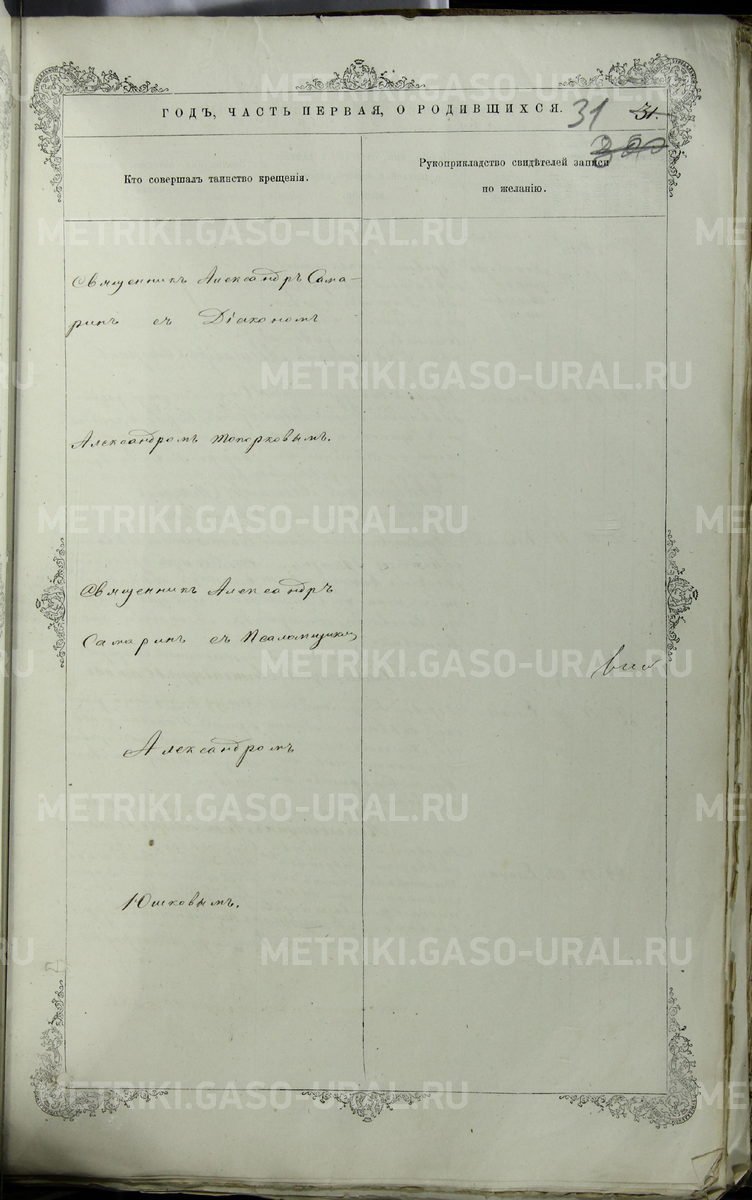 ГОДЪ, ЧАСТЬ ПЕРВАЯ, О РОДИВШИХСЯ. 31 31.
Кто совершалъ таинство крещенія.
Рукоприкладство свидѣтелей записи
по желанію.
Священникъ Александръ Сама-
ринъ съ Діакономъ
Александромъ Топорковымъ.
Священникъ Александръ
Самаринъ съ Псаломщикомъ
Александромъ
Юшковымъ.
METRIKI.GASO-URAL.RU